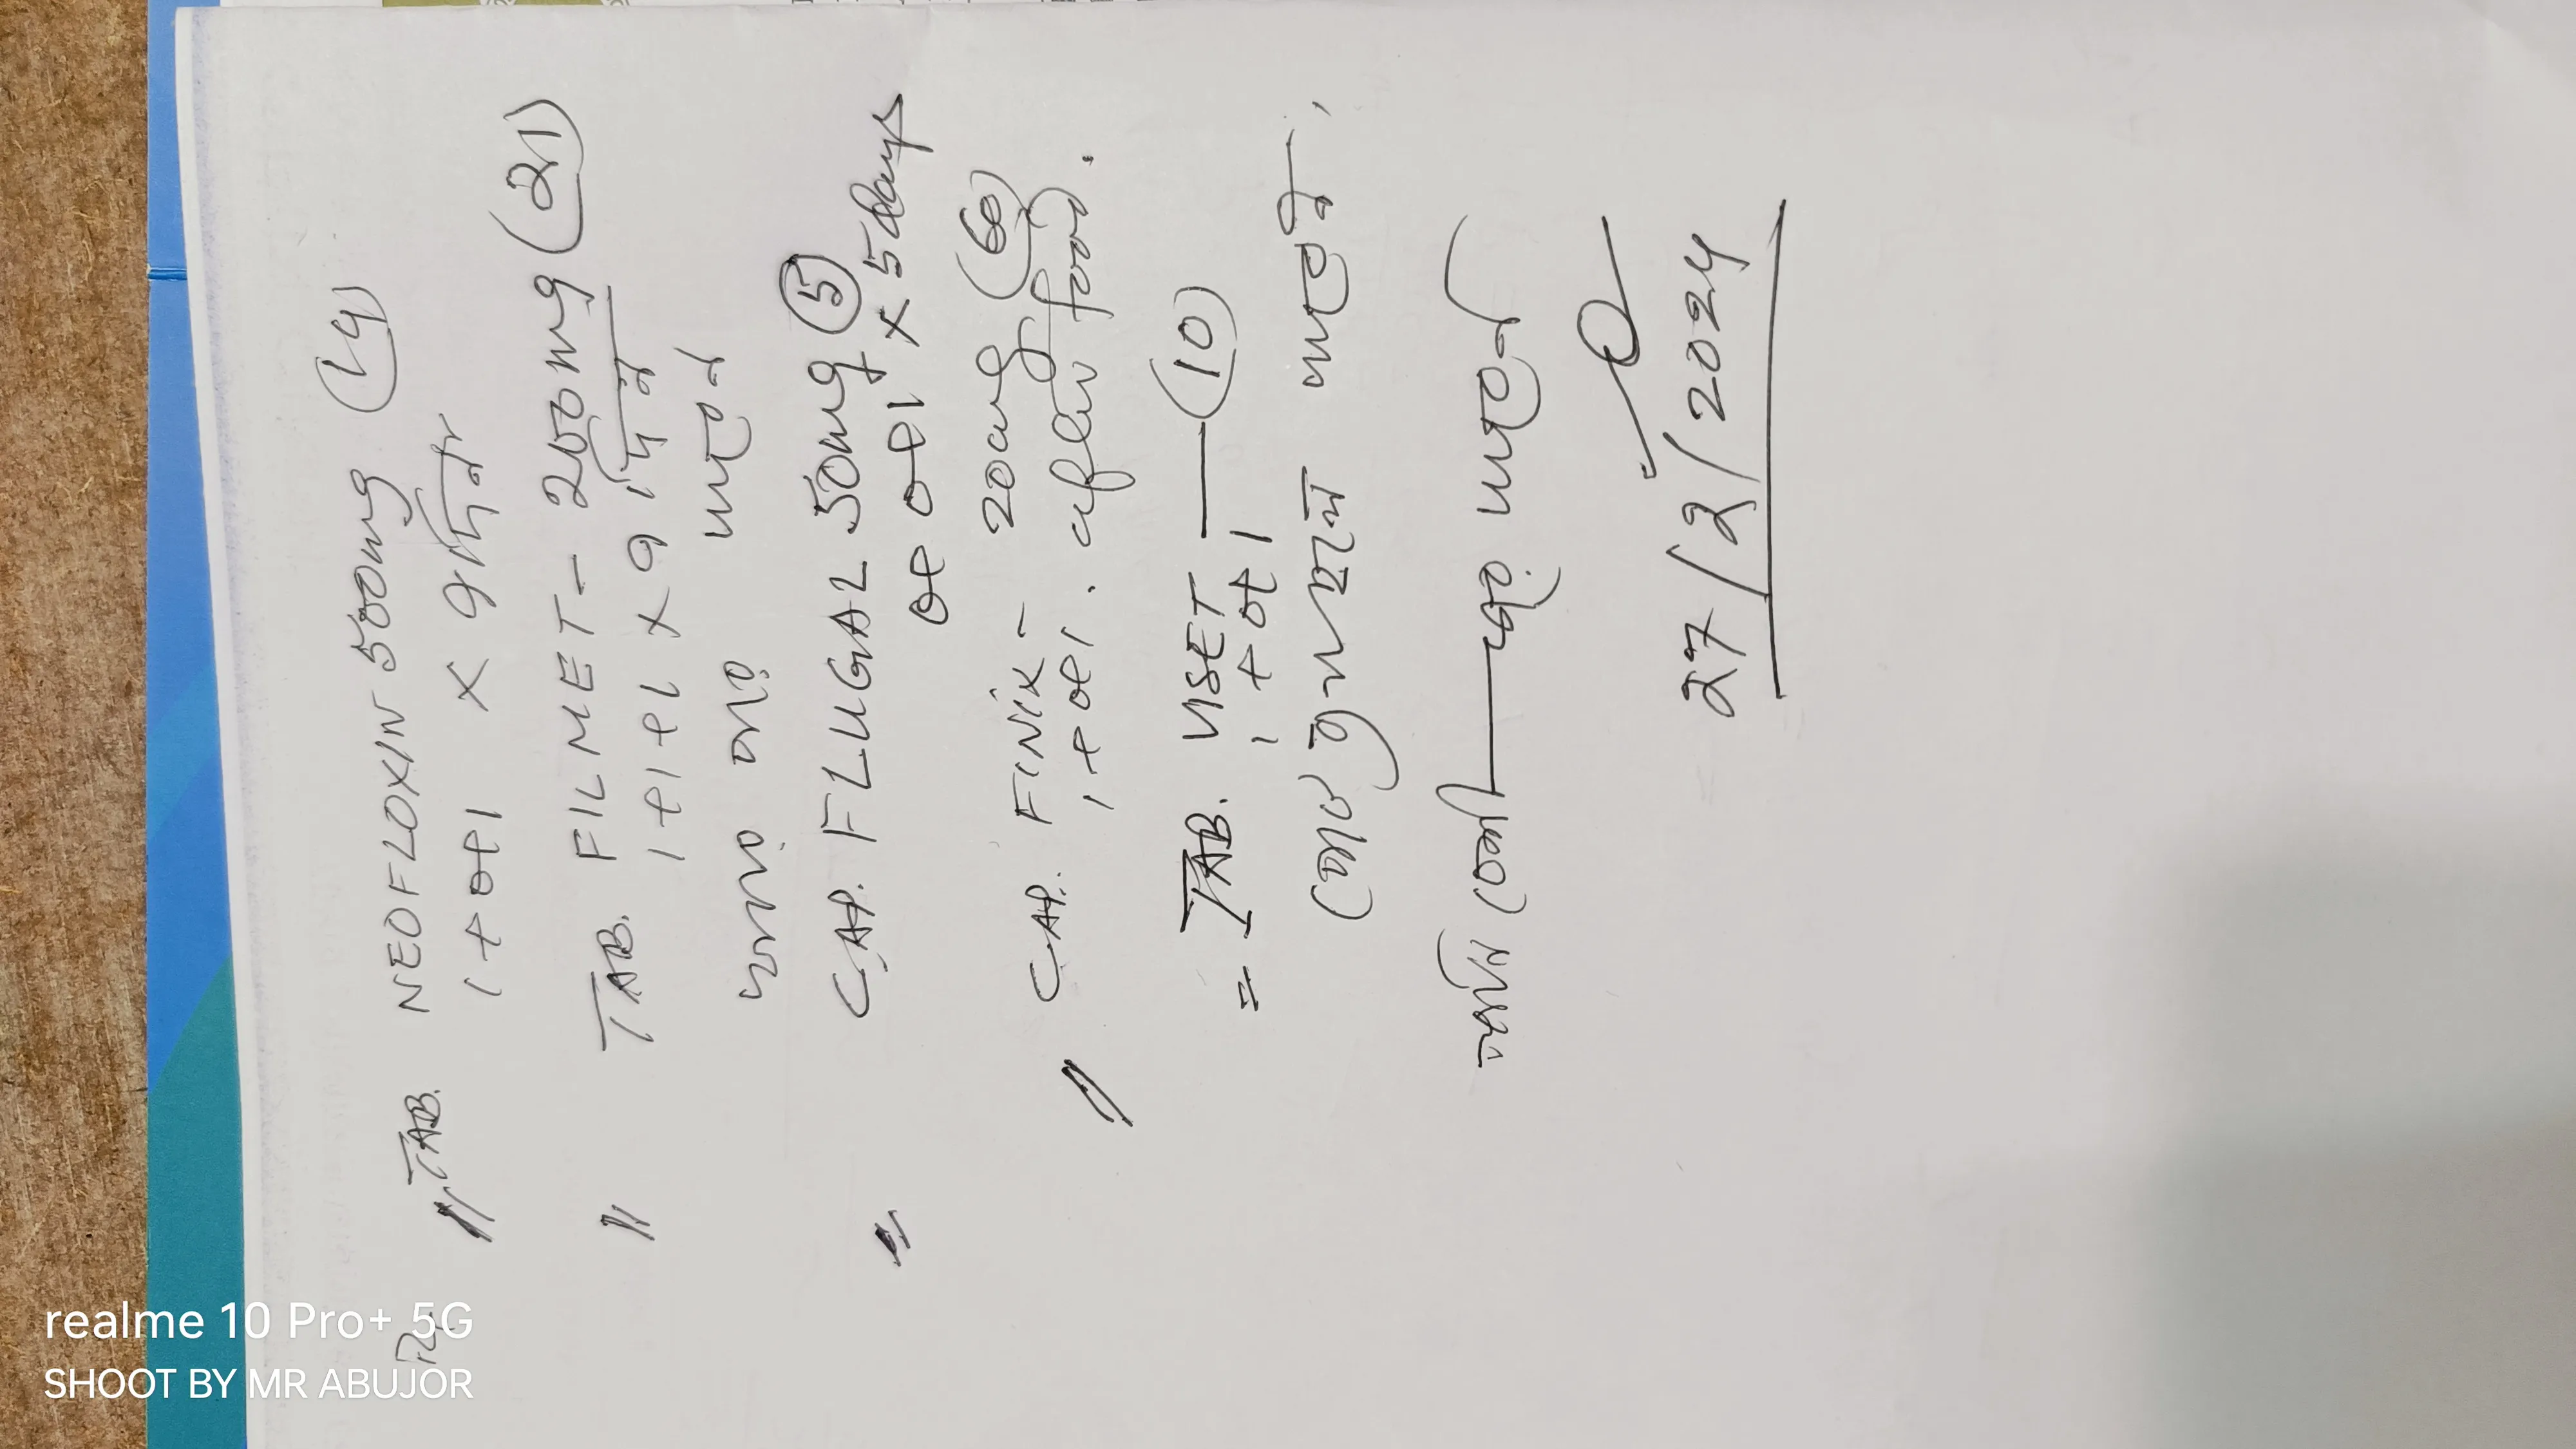 Rx
// TAB. NEOFLOXIN 500mg (14)
1+0+1 × ৭ দিন
// TAB. FILMET - 200mg (21)
1+1+1 × ৭ দিন
খাবেন
= CAP. FLUGAL 50mg (5)
0+0+1 × 5 days
// CAP. FINIX - 20mg (60)
1+0+1. after food.
= TAB. VISET — (10)
1+0+1
পেট ব্যথা হলে খাবেন,
খাবেন
27/2/2024
realme 10 Pro+ 5G
SHOOT BY MR ABUJOR